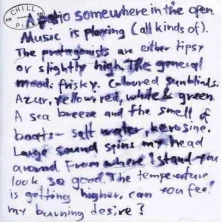 CHILL PILL
A patio somewhere in the open
Music is playing (all kinds of).
The protagonists are either tipsy
or slightly high. The general
mood: frisky. Coloured sunblinds.
Azur, yellow, red, white & green
A sea breeze and the smell of
boats - salt water, kerosine.
Large sound spins my head
around. From where I stand you
look so good. The temperature
is getting higher, can you feel
my burning desire?